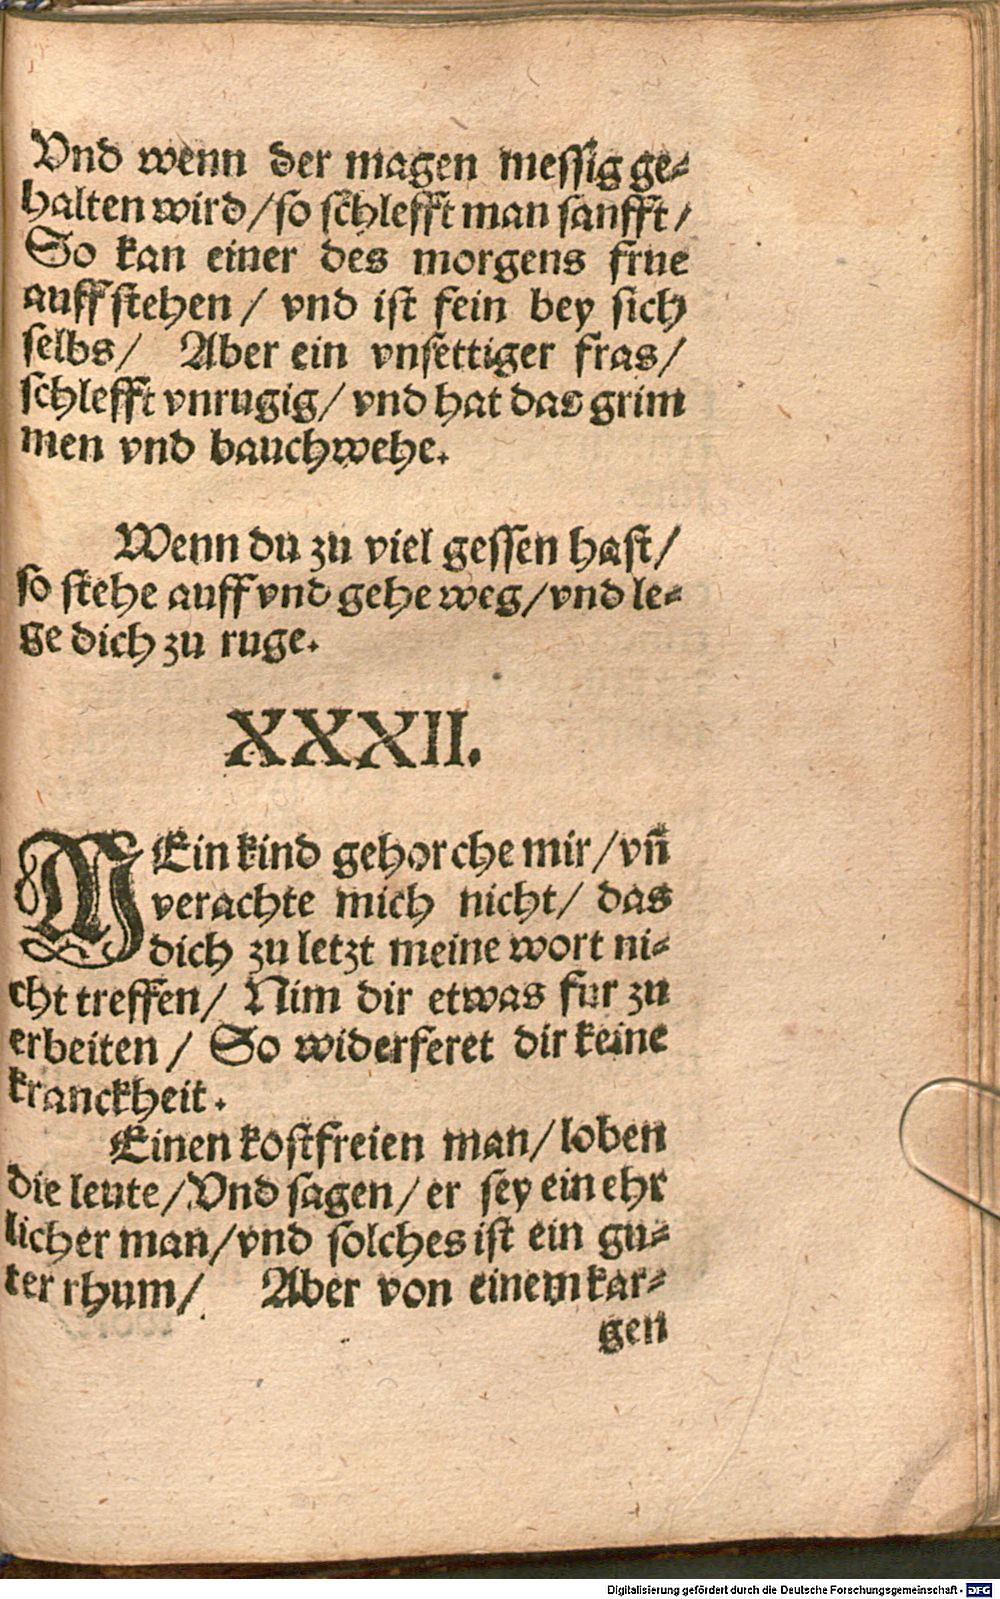 Vnd wenn der magen messig ge-
halten wird/so schlefft man sanfft/
So kan einer des morgens frue
auffstehen/ vnd ist fein bey sich
selbs/ Aber ein vnsettiger fras/
schlefft vnrugig/ vnd hat das grim
men vnd bauchwehe.
Wenn du zu viel gessen hast/
so stehe auff vnd gehe weg/vnd le-
ge dich zu ruge.
XXXII.
MEin kind gehorche mir/vn̄
verachte mich nicht/ das
dich zu letzt meine wort ni-
cht treffen/ Nim dir etwas fur zu
erbeiten/ So widerferet dir keine
kranckheit.
Einen kostfreien man/loben
die leute/Vnd sagen/er sey ein ehr
licher man/vnd solches ist ein gu-
ter rhum/ Aber von einem kar-
gen
Digitalisierung gefördert durch die Deutsche Forschungsgemeinschaft - DFG